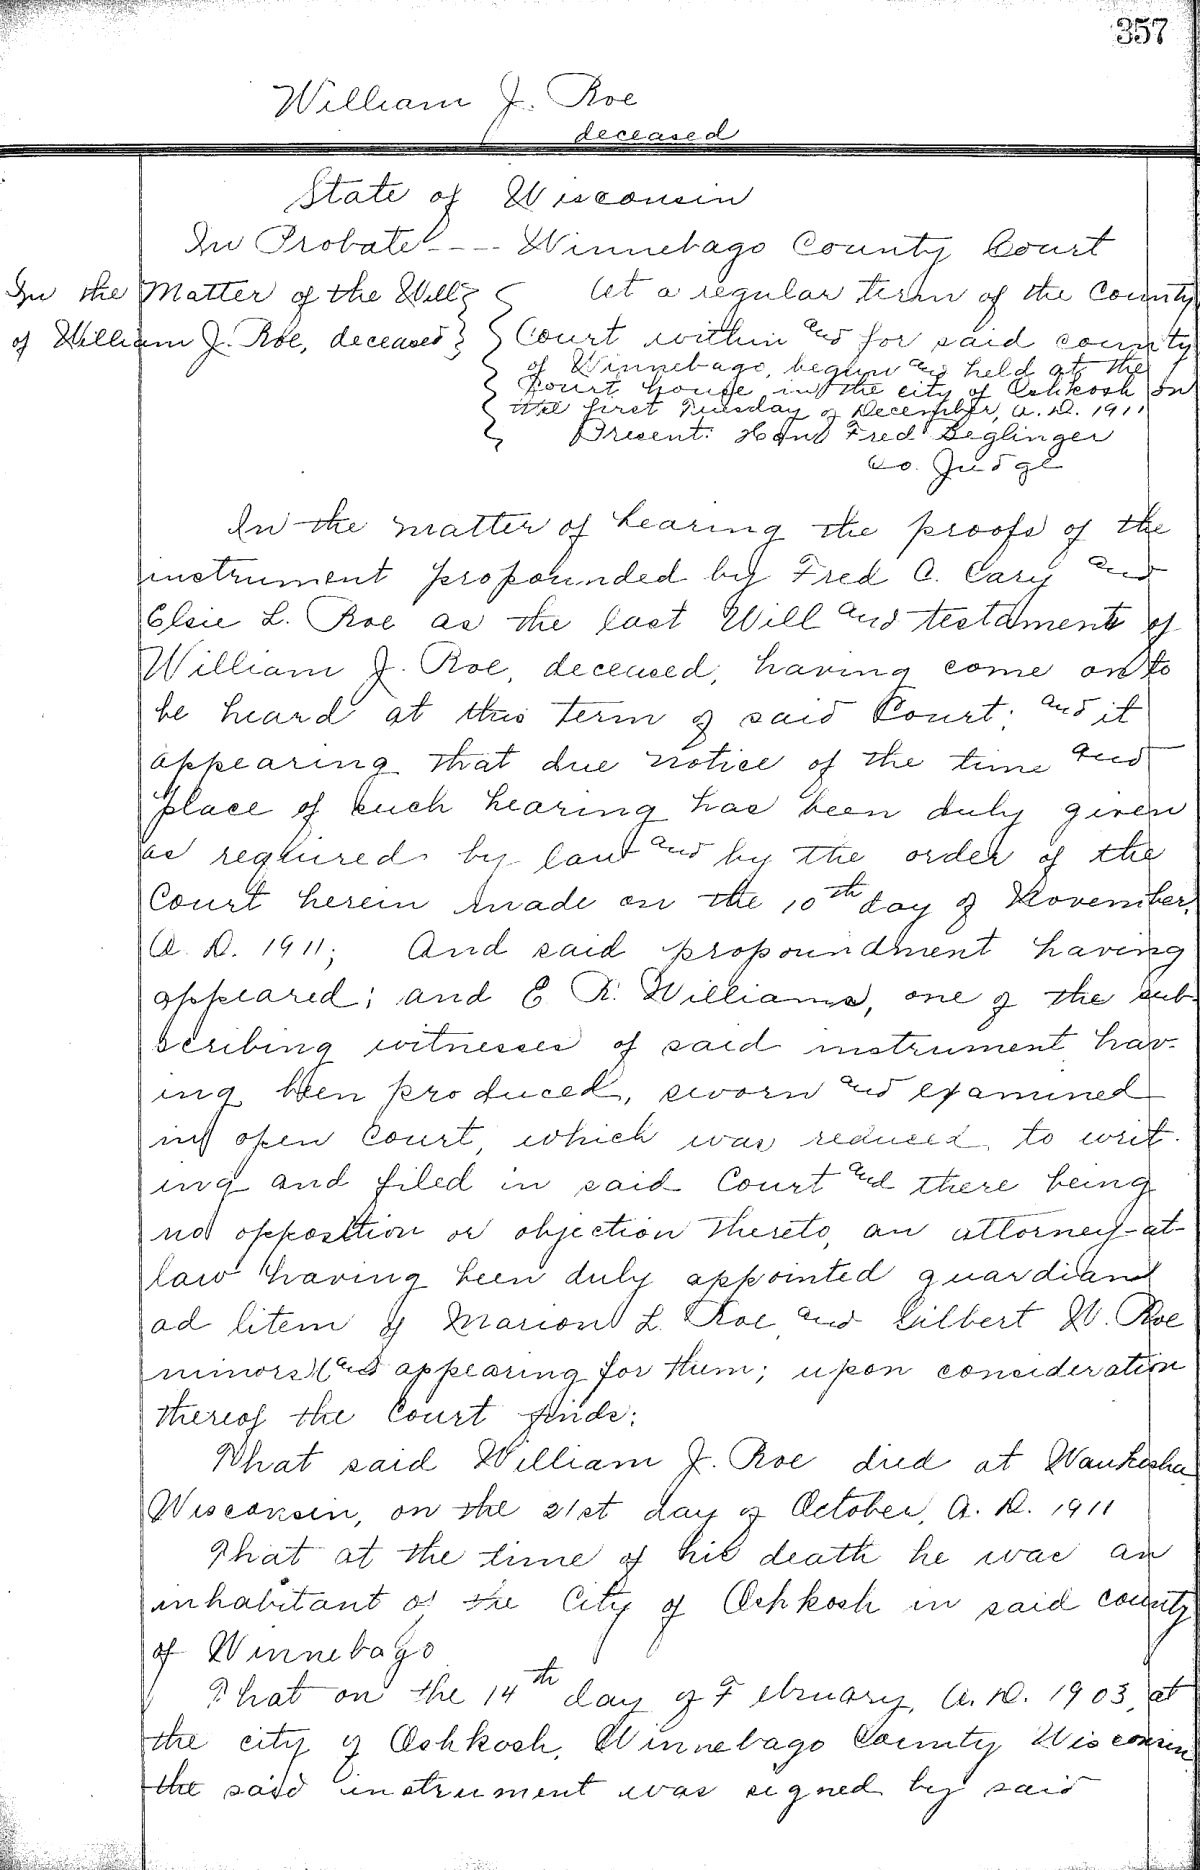 357
William J. Roe
deceased
State of Wisconsin
In Probate --- Winnebago County Court
In the Matter of the Will
of William J. Roe, deceased
At a regular term of the County
Court within and for said county
of Winnebago, begun and held at the
Court house in the city of Oshkosh on
the first Tuesday of December, A. D. 1911
Present: Hon Fred Beglinger
Co. Judge
In the matter of hearing the proofs of the
instrument propounded by Fred C. Cary and
Elsie L. Roe as the last Will and testament of
William J. Roe, deceased, having come on to
be heard at this term of said Court; and it
appearing that due notice of the time and
place of such hearing has been duly given
as required by law and by the order of the
Court herein made on the 10th day of November,
A. D. 1911; And said propoundment having
appeared; and E. R. Williams, one of the sub-
scribing witnesses of said instrument hav-
ing been produced, sworn and examined
in open Court, which was reduced to writ-
ing and filed in said Court and there being
no opposition or objection thereto, an attorney-at-
law having been duly appointed guardian
ad litem of Marion L. Roe and Gilbert W. Roe
minors and appearing for them; upon consideration
thereof the Court finds:
That said William J. Roe died at Waukesha
Wisconsin, on the 21st day of October, A. D. 1911
That at the time of his death he was an
inhabitant of the City of Oshkosh in said county
of Winnebago
That on the 14th day of February, A. D. 1903, at
the city of Oshkosh, Winnebago County Wisconsin
the said instrument was signed by said